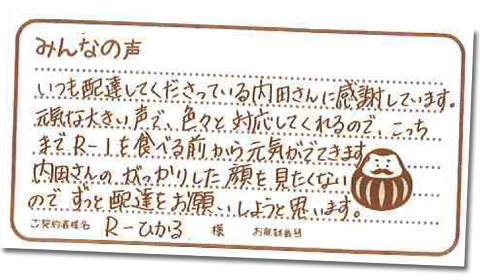 みんなの声
いつも配達してくださっている内田さんに感謝しています。
元気な大きい声で、色々と対応してくれるので、こっち
までR-1を食べる前から元気がでてきます
内田さんの がっかりした顔を見たくない
ので ずっと配達をお願いしようと思います。
ご契約者様名 R-ひかる 様 お電話番号